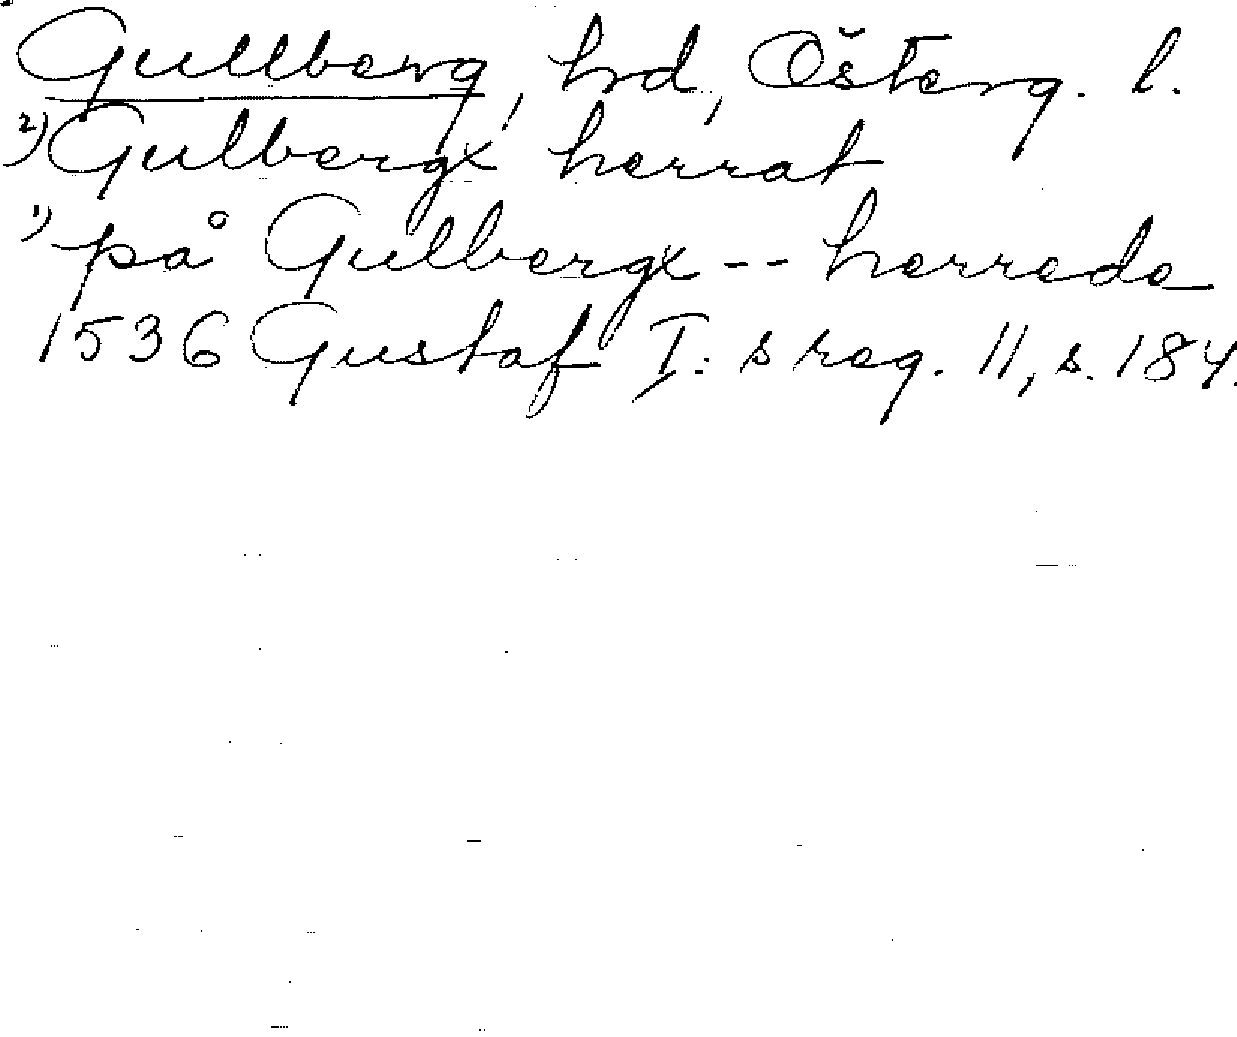 Gullberg, hrd, Österg. l.
2) Gulbergx herrat
1) på Gulbergx -- herrede
1536 Gustaf I:s reg. 11, s. 184.